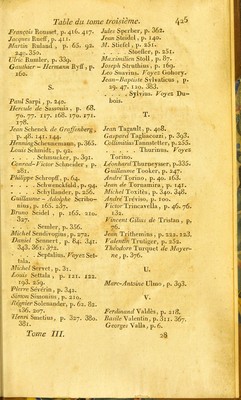 Table du tome troisième. 435
François Rousset, p. 416. 417.
Jacques Rueff, p. 411.
Martin Ruland, p. 65. 92.
240. 350.
Ulric Rumler, p. 339.
Gauthier – Hermann Ryff, p.
160.
S
Paul Sarpi, p. 240.
Hercule de Saxonia, p. 68.
70. 77. 127. 168. 170. 171.
178.
Jean Schenck de Graffenberg,
p. 48. 141. 144
Henning Scheunemann, p. 365.
Louis Schmidt, p. 92.
. . . . Schmucker, p. 391.
Conrad-Victor Schneider, p.
281.
Philippe Schropff, p. 64.
. . . . Schwanckfald, p. 94.
. . . . Schyllander, p. 226.
Guillaume - Adolphe Scribo-
nius, p. 165. 257.
Bruno Seidel, p. 165. 210.
327.
. . . . Semler, p. 356.
Michel Sendivogius, p. 272.
Daniel Sennert, p. 84. 341.
343. 361. 372.
. . . . Septalius, Voyez Set-
tala.
Michel Servet, p. 31.
Louis Settala, p. 121. 122.
193. 259.
Pierre Séverin, p. 342.
Simon Simonius, p. 210.
Régnier Solenander, p. 62. 82.
136. 207.
Henri Smetius, p. 327. 380.
381.
Tome III.
Jules Sperber, p. 362.
Jean Steidel, p. 140.
M. Stiefel, p. 251.
. . . . Stoeffler, p. 251.
Maximilien Stoll, p. 87.
Joseph Struthius, p. 169.
Leo Suavius. Voyez Gohory.
Jean-Baptiste Sylvaticus, p.
29. 47. 120. 383.
. . . . Sylvius. Voyez Du-
bois.
T.
Jean Tagault, p. 408.
Gaspard Tagliacozzi, p. 393.
Collimitius Tannstetter, p. 253.
. . . . Thurinus. Voyez
Torino.
Léonhard Thurneysser, p. 335.
Guillaume Tooker, p. 247.
André Torino, p. 40. 163.
Jean de Tornamira, p. 141.
Michel Toxitès, p. 340. 348.
André Trévino, p. 100.
Victor Trincavella, p. 46. 76.
132.
Vincent Cilius de Tristan, p.
76.
Jean Trithemius, p. 222. 223.
Valentin Trutiger, p. 252.
Théodore Turquet de Mayer-
ne, p. 376.
U.
Marc-Antoine Ulmo, p. 393.
V.
Ferdinand Valdès, p. 218.
Basile Valentin, p. 311. 367.
Georges Valla, p. 6.
28